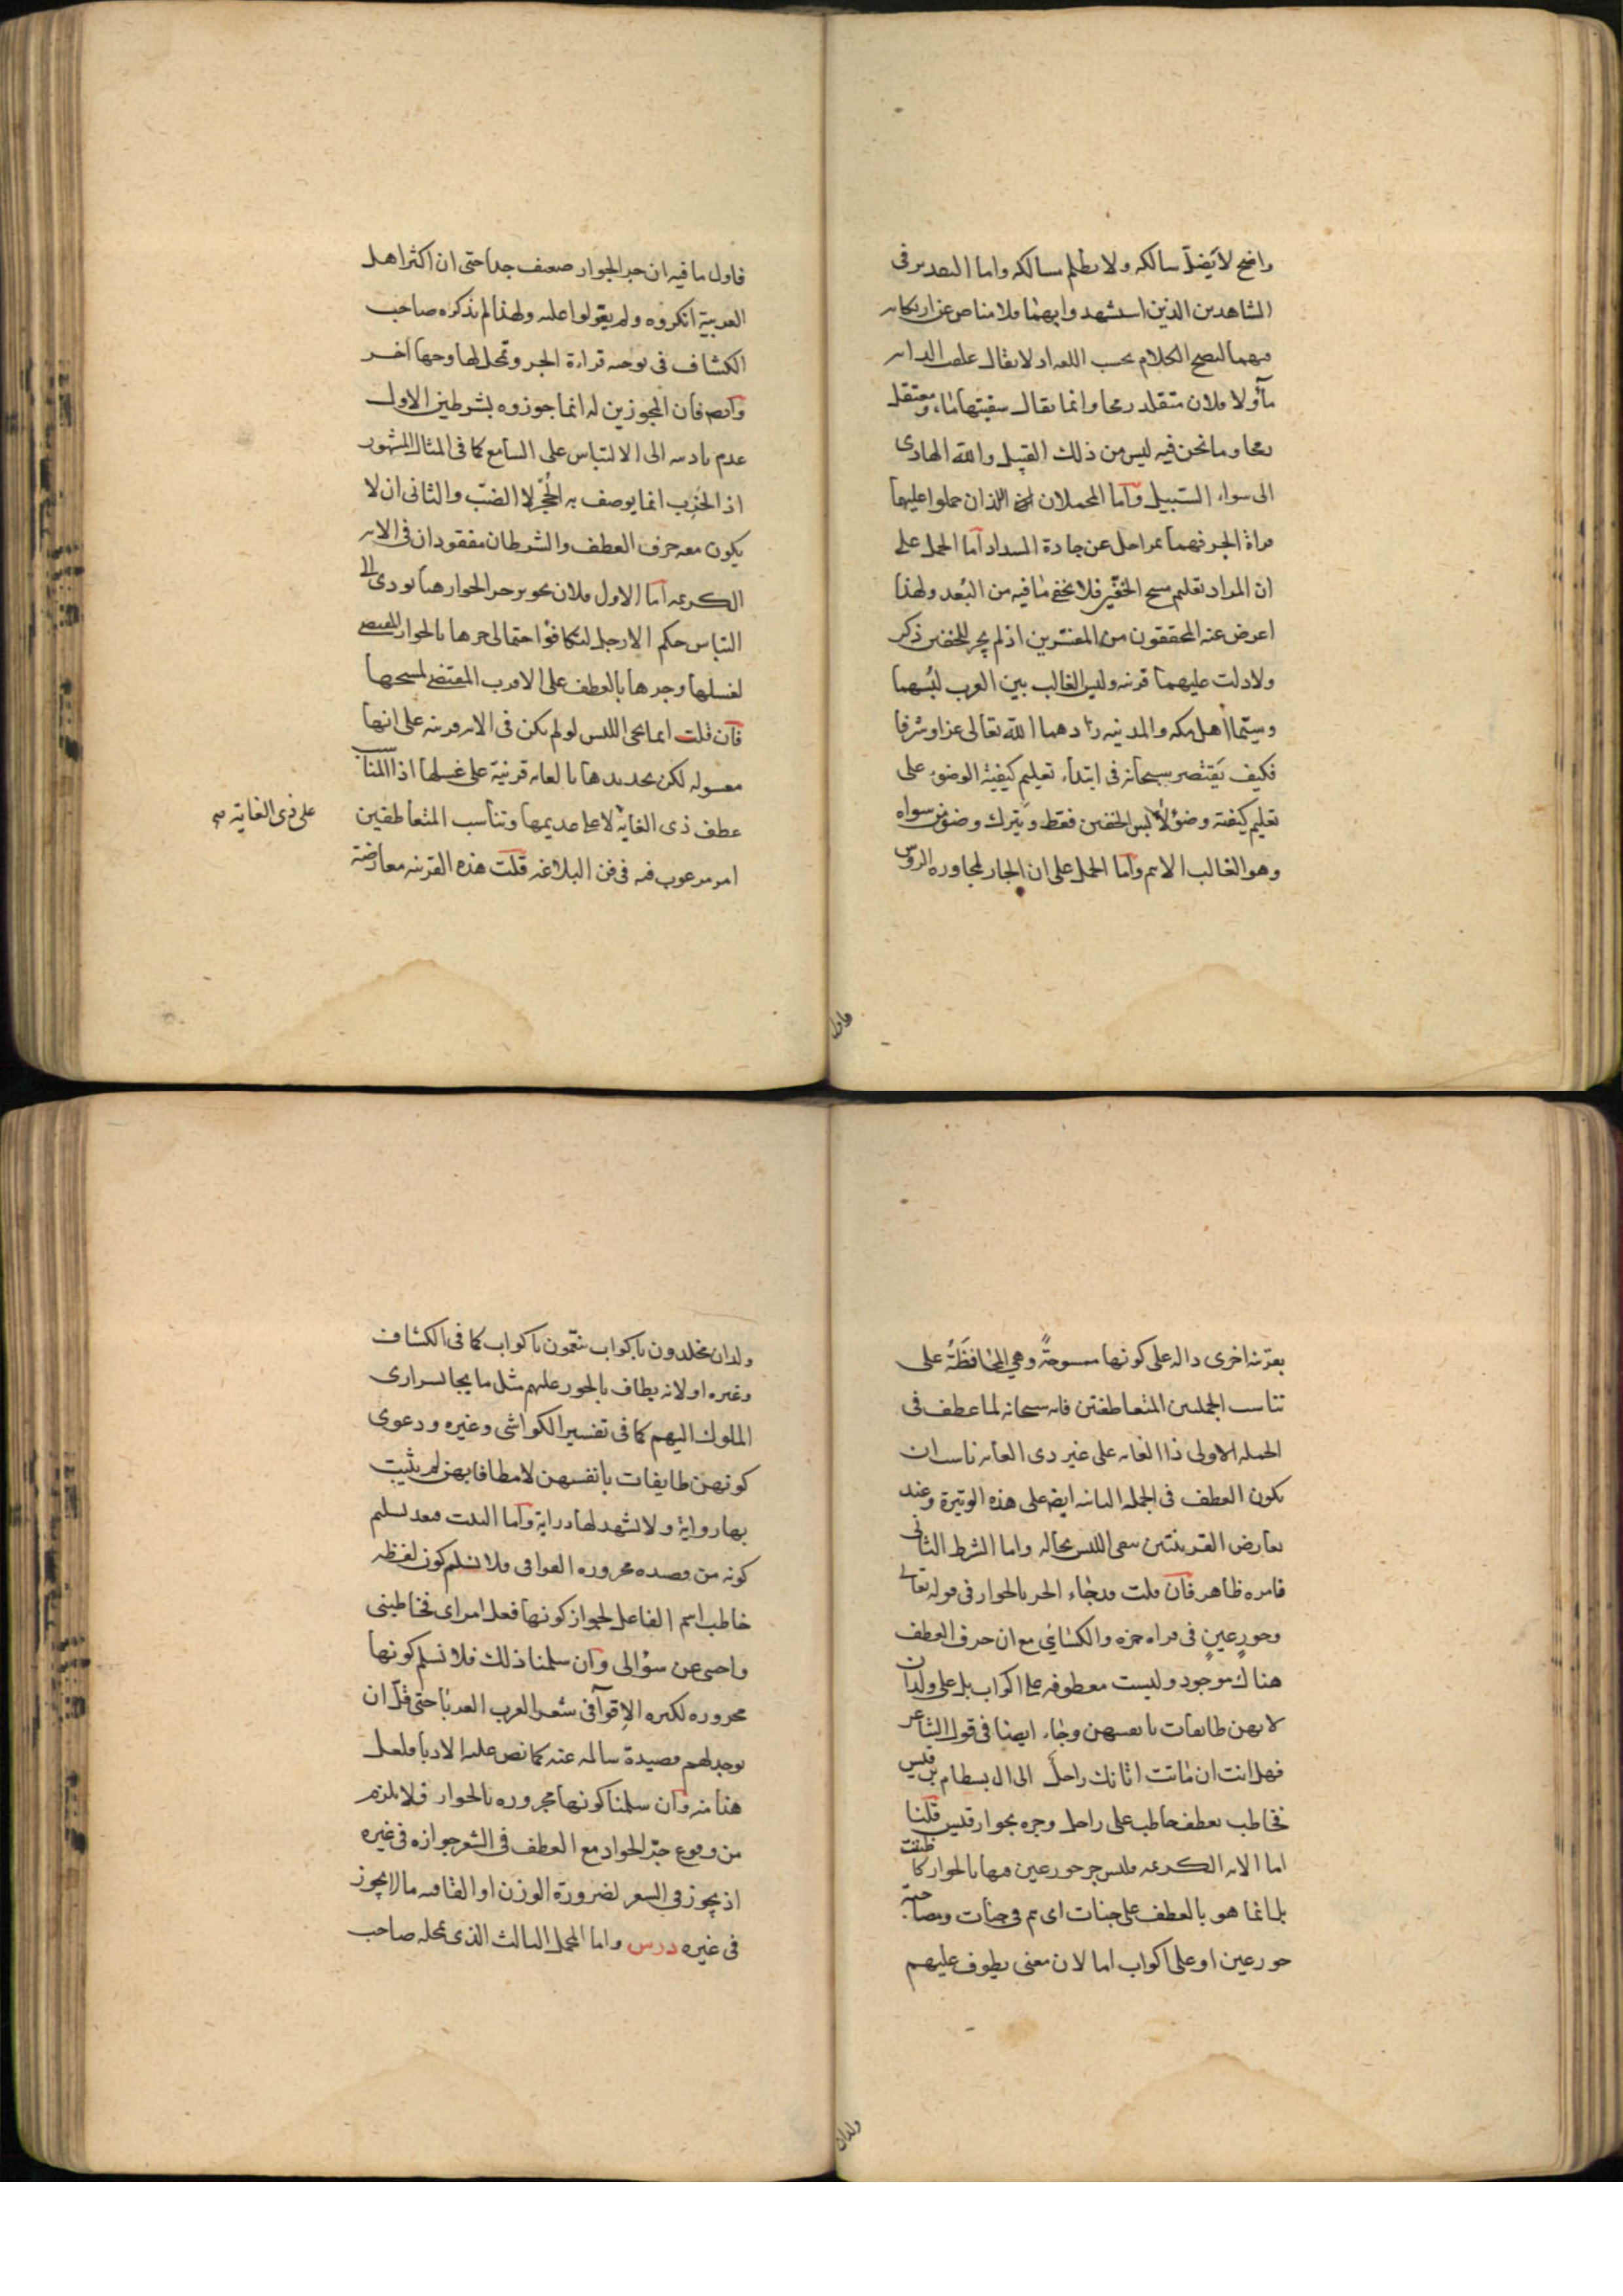 واضح لا يَضلّ سالكه ولا يظلم مسالكه واما التقدير فى
الشاهدين الذين استشهدوا بهما فلا مناص عن ارتكابه
فيهما ليصح الكلام بحسب اللغه اذ لا يقال علفت الدابه
مآء ولا فلان متقلد رمحا وانما يقال سقيتها ماء ومعتقل
رمحا وما نحن فيه ليس من ذلك القبيل والله الهادى
الى سواء السبيل وآما المحملان اللذان حملوا عليها
قراة الجر فهما بمراحل عن جادة السداد آما الحمل على
ان المراد تعليم مسح الخفّين فلا يخفى ما فيه من البُعد ولهذا
اعرض عنه المحققون من المفسرين اذ لم يجر للخفين ذكر
ولا دلت عليهما قرينه وليس الغالب بين العرب لبُسهما
وسيّما اهل مكه والمدينه زادهما الله تعالى عزا وشرفا
فكيف يَقتصر سبحانه فى ابتداء تعليم كيفية الوضوء على
تعليم كيفية وضوء لابس الخفين فقط ويترك وضوء من سواه
وهو الغالب الاعم وآما الحمل على ان الجار لمجاوره الروس
فاول
فاول ما فيه ان جر الجوار ضعيف جدا حتى ان اكثر اهل
العربية انكروه ولم يعولوا عليه ولهذا لم يذكره صاحب
الكشاف فى توجيه قراءة الجر وتمحل لها وجها آخر
وآيضه فان المجوزين له انما جوزوه بشرطين الاول
عدم تاديته الى الالتباس على السامع كما فى المثال المشهور
اذ الخَرِب انما يوصف به الجُحر لا الضبّ والثانى ان لا
يكون معه حرف العطف والشرطان مفقودان فى الايه
الكريمه آما الاول فلان تجويز جر الجوار هنا يودى الى
التباس حكم الارجل لتكافؤ احتمالى جرها بالجوار المقتضى
لغسلها وجرها بالعطف على الاقرب المقتضى لمسحها
فآن قلت انما يجى اللبس لو لم يكن فى الايه قرينه على انها
مغسوله لكن تحديدها بالغايه قرينة على غسلها اذ المناسب
عطف ذى الغاية لا على عديمها وتناسب المتعاطفين
على ذى الغاية صح
امر مرغوب فيه فى فن البلاغه قلت هذه القرينه معارضة
بقرينه اخرى داله على كونها ممسوحةً وهى المُحافظَة على
تناسب الجملتين المتعاطفتين فانه سبحانه لما عطف فى
الجمله الاولى ذا الغايه على غير ذى الغايه ناسب ان
يكون العطف فى الجمله الثانيه ايضه على هذه الوتيرة وعند
تعارض القرينتين يبقى اللبس بحاله واما الشرط الثانى
فامره ظاهر فآن قلت قد جاء الجر بالجوار فى قوله تعالى
وحورٍ عينٍ فى قراه حمزه والكسائي مع ان حرف العطف
هناك موجود وليست معطوفه على اكواب بل على ولدان
لانهن طايفات بانفسهن وجاء ايضا فى قول الشاعر
فهل انت ان ماتت اتانك راحل الى ال بسطام بن قيس
فخاطب بعطف خاطب على راحل وجره بجوار قيس قلنا
اما الايه الكريمه فليس جر حور عين فيها بالجوار كما ظننت
بل انما هو بالعطف على جنات اى هم فى جنات ومصاحبة
حور عين او على اكواب اما لان معنى يطوف عليهم
ولدان
ولدان مخلدون باكواب ينعّمون باكواب كما فى الكشاف
وغيره او لانه يطاف بالحور عليهم مثل ما يجا بسرارى
الملوك اليهم كما فى تفسير الكواشى وغيره ودعوى
كونهن طايفات بانفسهن لا مطافا بهن لم يثبت
بها رواية ولا تشهد لها دراية وآما البيت فبعد تسليم
كونه من قصيده مجروره القوافى فلا نسلم كون لفظه
خاطب اسم الفاعل لجواز كونها فعل امر اى فخاطبنى
واجبى عن سؤالى وآن سلمنا ذلك فلا نسلم كونها
مجروره لكثره الاِقوآ فى شعر العرب العربا حتى قلّ ان
يوجد لهم قصيدة سالمه عنه كما نص عليه الادبا فلعل
هذا منه وآن سلمنا كونها مجروره بالجوار فلا يلزم
من وقوع جرّ الجوار مع العطف فى الشعر جوازه فى غيره
اذ يجوز فى الشعر لضرورة الوزن او القافيه ما لا يجوز
فى غيره درس واما المحمل الثالث الذى تمحله صاحب